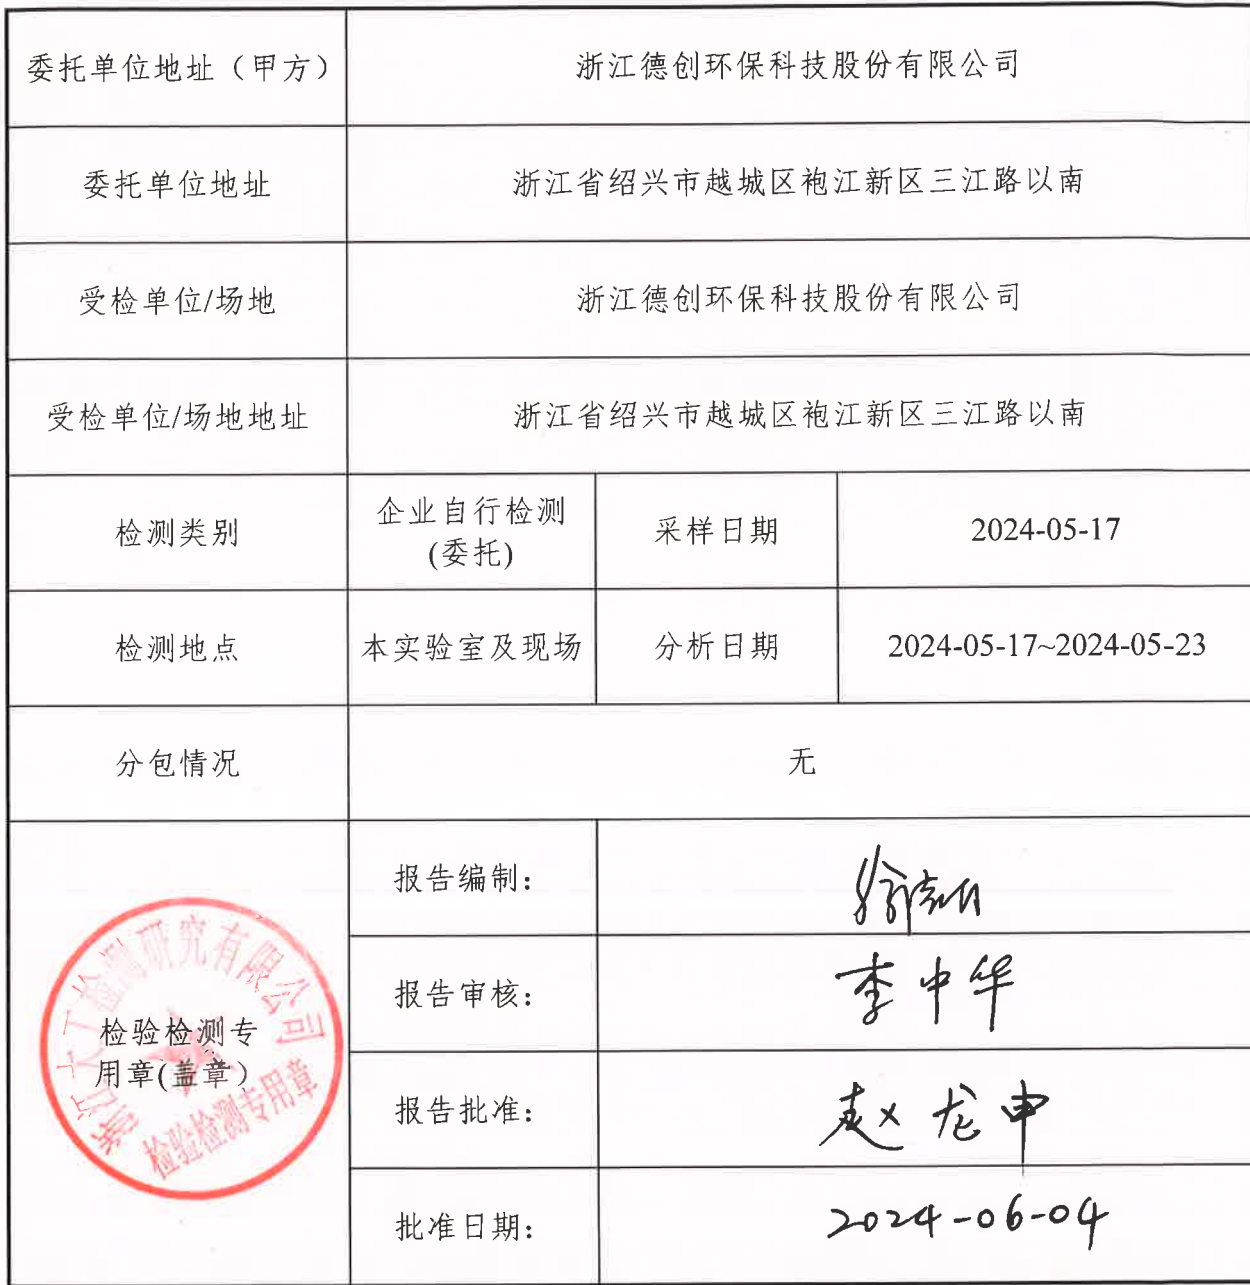 委托单位地址（甲方） 浙江德创环保科技股份有限公司
委托单位地址 浙江省绍兴市越城区袍江新区三江路以南
受检单位/场地 浙江德创环保科技股份有限公司
受检单位/场地地址 浙江省绍兴市越城区袍江新区三江路以南
检测类别 企业自行检测 采样日期 2024-05-17
(委托)
检测地点 本实验室及现场 分析日期 2024-05-17~2024-05-23
分包情况 无
报告编制：
报告审核： 李中华
检验检测专
用章(盖章）
检测研究有限公司
检验检测专用章
报告批准： 赵龙申
批准日期： 2024-06-04